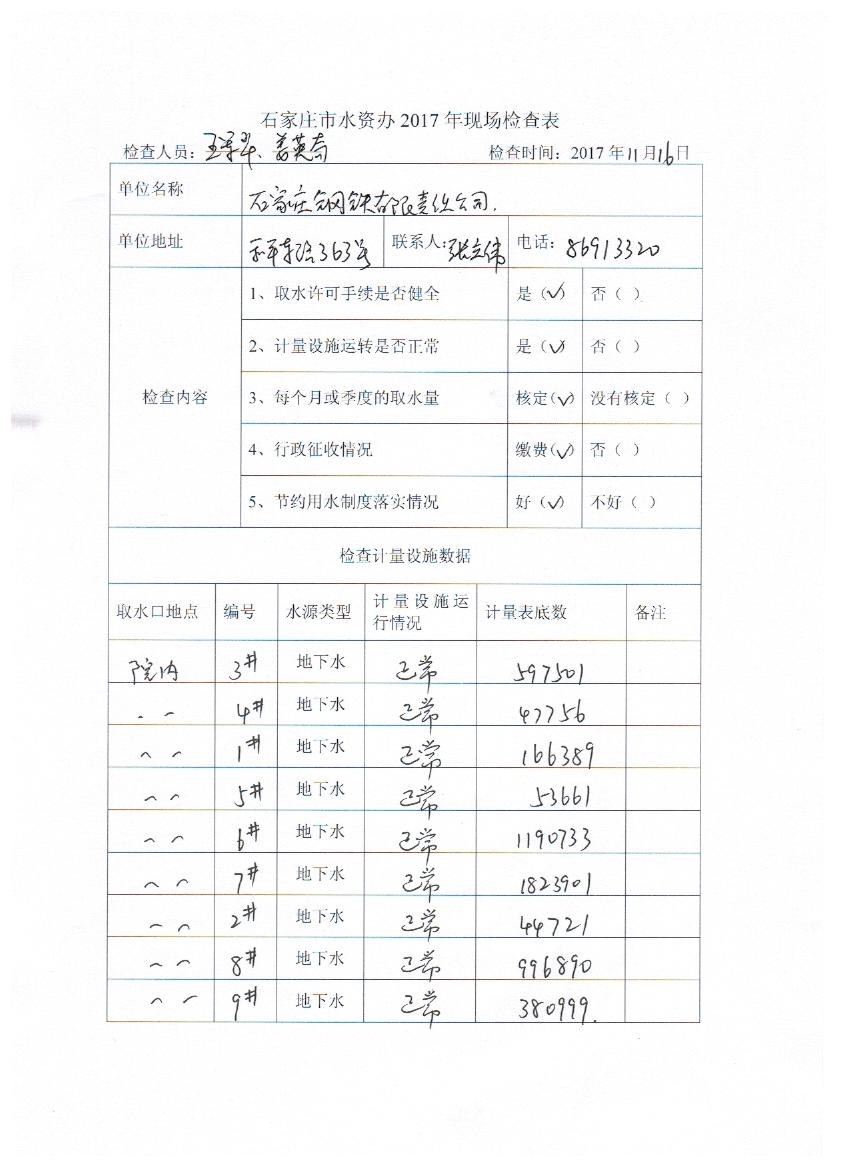 石家庄市水资办 2017 年现场检查表
检查人员: 王 、姜英奇 检查时间: 2017 年 11 月 16 日
单位名称 石家庄钢铁有限责任公司.
单位地址 和平东路363号 联系人: 张立伟 电话: 86913320
检查内容
1、取水许可手续是否健全 是 (√) 否 ( )
2、计量设施运转是否正常 是 (√) 否 ( )
3、每个月或季度的取水量 核定(√) 没有核定 ( )
4、行政征收情况 缴费(√) 否 ( )
5、节约用水制度落实情况 好 (√) 不好 ( )
检查计量设施数据
取水口地点 编号 水源类型 计量设施运行情况 计量表底数 备注
院内 3# 地下水 正常 597501
〃 4# 地下水 正常 47756
〃 1# 地下水 正常 166389
〃 5# 地下水 正常 53661
〃 6# 地下水 正常 1190733
〃 7# 地下水 正常 1823901
〃 2# 地下水 正常 44721
〃 8# 地下水 正常 996890
〃 9# 地下水 正常 380999.